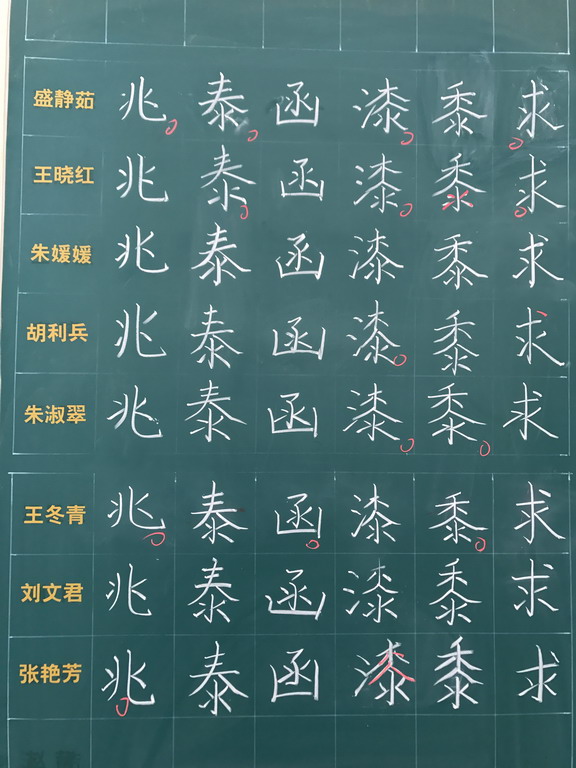 盛静茹 兆 泰 函 漆 黍 求
王晓红 兆 泰 函 漆 黍 求
朱媛媛 兆 泰 函 漆 黍 求
胡利兵 兆 泰 函 漆 黍 求
朱淑翠 兆 泰 函 漆 黍 求
王冬青 兆 泰 函 漆 黍 求
刘文君 兆 泰 函 漆 黍 求
张艳芳 兆 泰 函 漆 黍 求